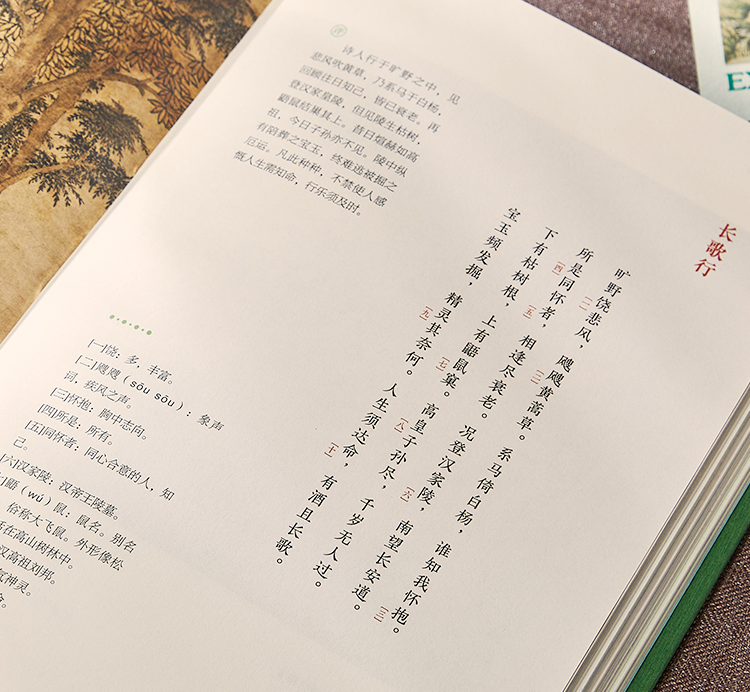 长歌行
旷野饶[一]悲风，飕飕[二]黄蒿草。系马倚白杨，谁知我怀抱[三]。
所是[四]同怀者[五]，相逢尽衰老。况登汉家陵[六]，南望长安道。
下有枯树根，上有鼯鼠[七]窠。高皇[八]子孙尽，千岁无人过。
宝玉频发掘，精灵[九]其奈何。人生须达命[十]，有酒且长歌。
评
诗人行于旷野之中，见
悲风吹黄草，乃系马于白杨，
回顾往日知己，皆已衰老。再
登汉家皇陵，但见陵生枯树，
鼯鼠结巢其上。昔日煊赫如高
祖，今日子孙亦不见。陵中纵
有陪葬之宝玉，终难逃被掘之
厄运。凡此种种，不禁使人感
慨人生需知命，行乐须及时。
[一]饶：多，丰富。
[二]飕飕（sōu sōu）：象声
词，疾风之声。
[三]怀抱：胸中志向。
[四]所是：所有。
[五]同怀者：同心合意的人，知
己。
六]汉家陵：汉帝王陵墓。
]鼯（wú）鼠：鼠名。别名
俗称大飞鼠。外形像松
在高山树林中。
汉高祖刘邦。
气神灵。
E